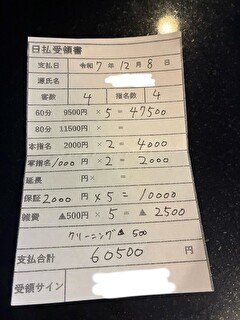 日払受領書
支払日 令和 7 年 12 月 8 日
源氏名
客数 4 指名数 4
60分 9500円 × 5 = 47500
80分 11500円 × =
本指名 2000円 × 2 = 4000
写指名 1000 円 × 2 = 2000
延長 円 × =
保証 2000 円 × 5 = 10000
雑費 ▲500円 × 5 = ▲ 2500
クリーニング ▲ 500
支払合計 60500 円
受領サイン